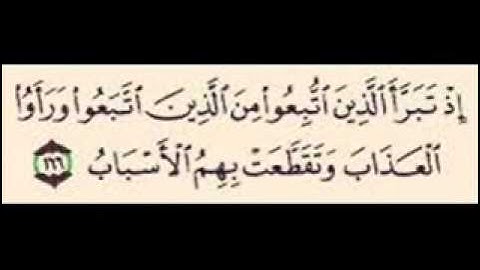 إِذۡ تَبَرَّأَ ٱلَّذِينَ ٱتُّبِعُواْ مِنَ ٱلَّذِينَ ٱتَّبَعُواْ وَرَأَوُاْ
ٱلۡعَذَابَ وَتَقَطَّعَتۡ بِهِمُ ٱلۡأَسۡبَابُ ١٦٦